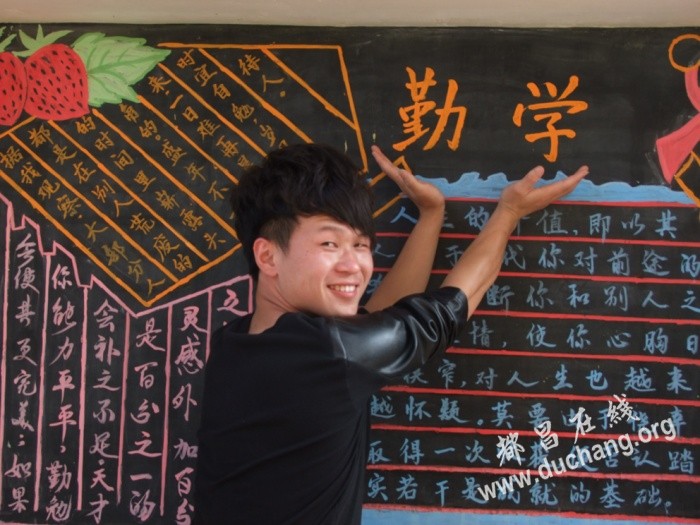 勤学
据我观察大部分人
都是在别人荒废的
的时间里崭露头
的。盛年不
来。一日难再晨
时宜自勉,岁
待人。
会使其更完美;如果
你能力平平,勤勉
会补之不足。天才
是百分之一的
灵感外加百分
之
人生的价值,即以其
人于代你对前途的
断你和别人之
情,使你心胸日
狭窄,对人生也越来
越怀疑。莫要幸
取得一次否认踏
实若干是成就的基础。
都昌在线
www.duchang.org